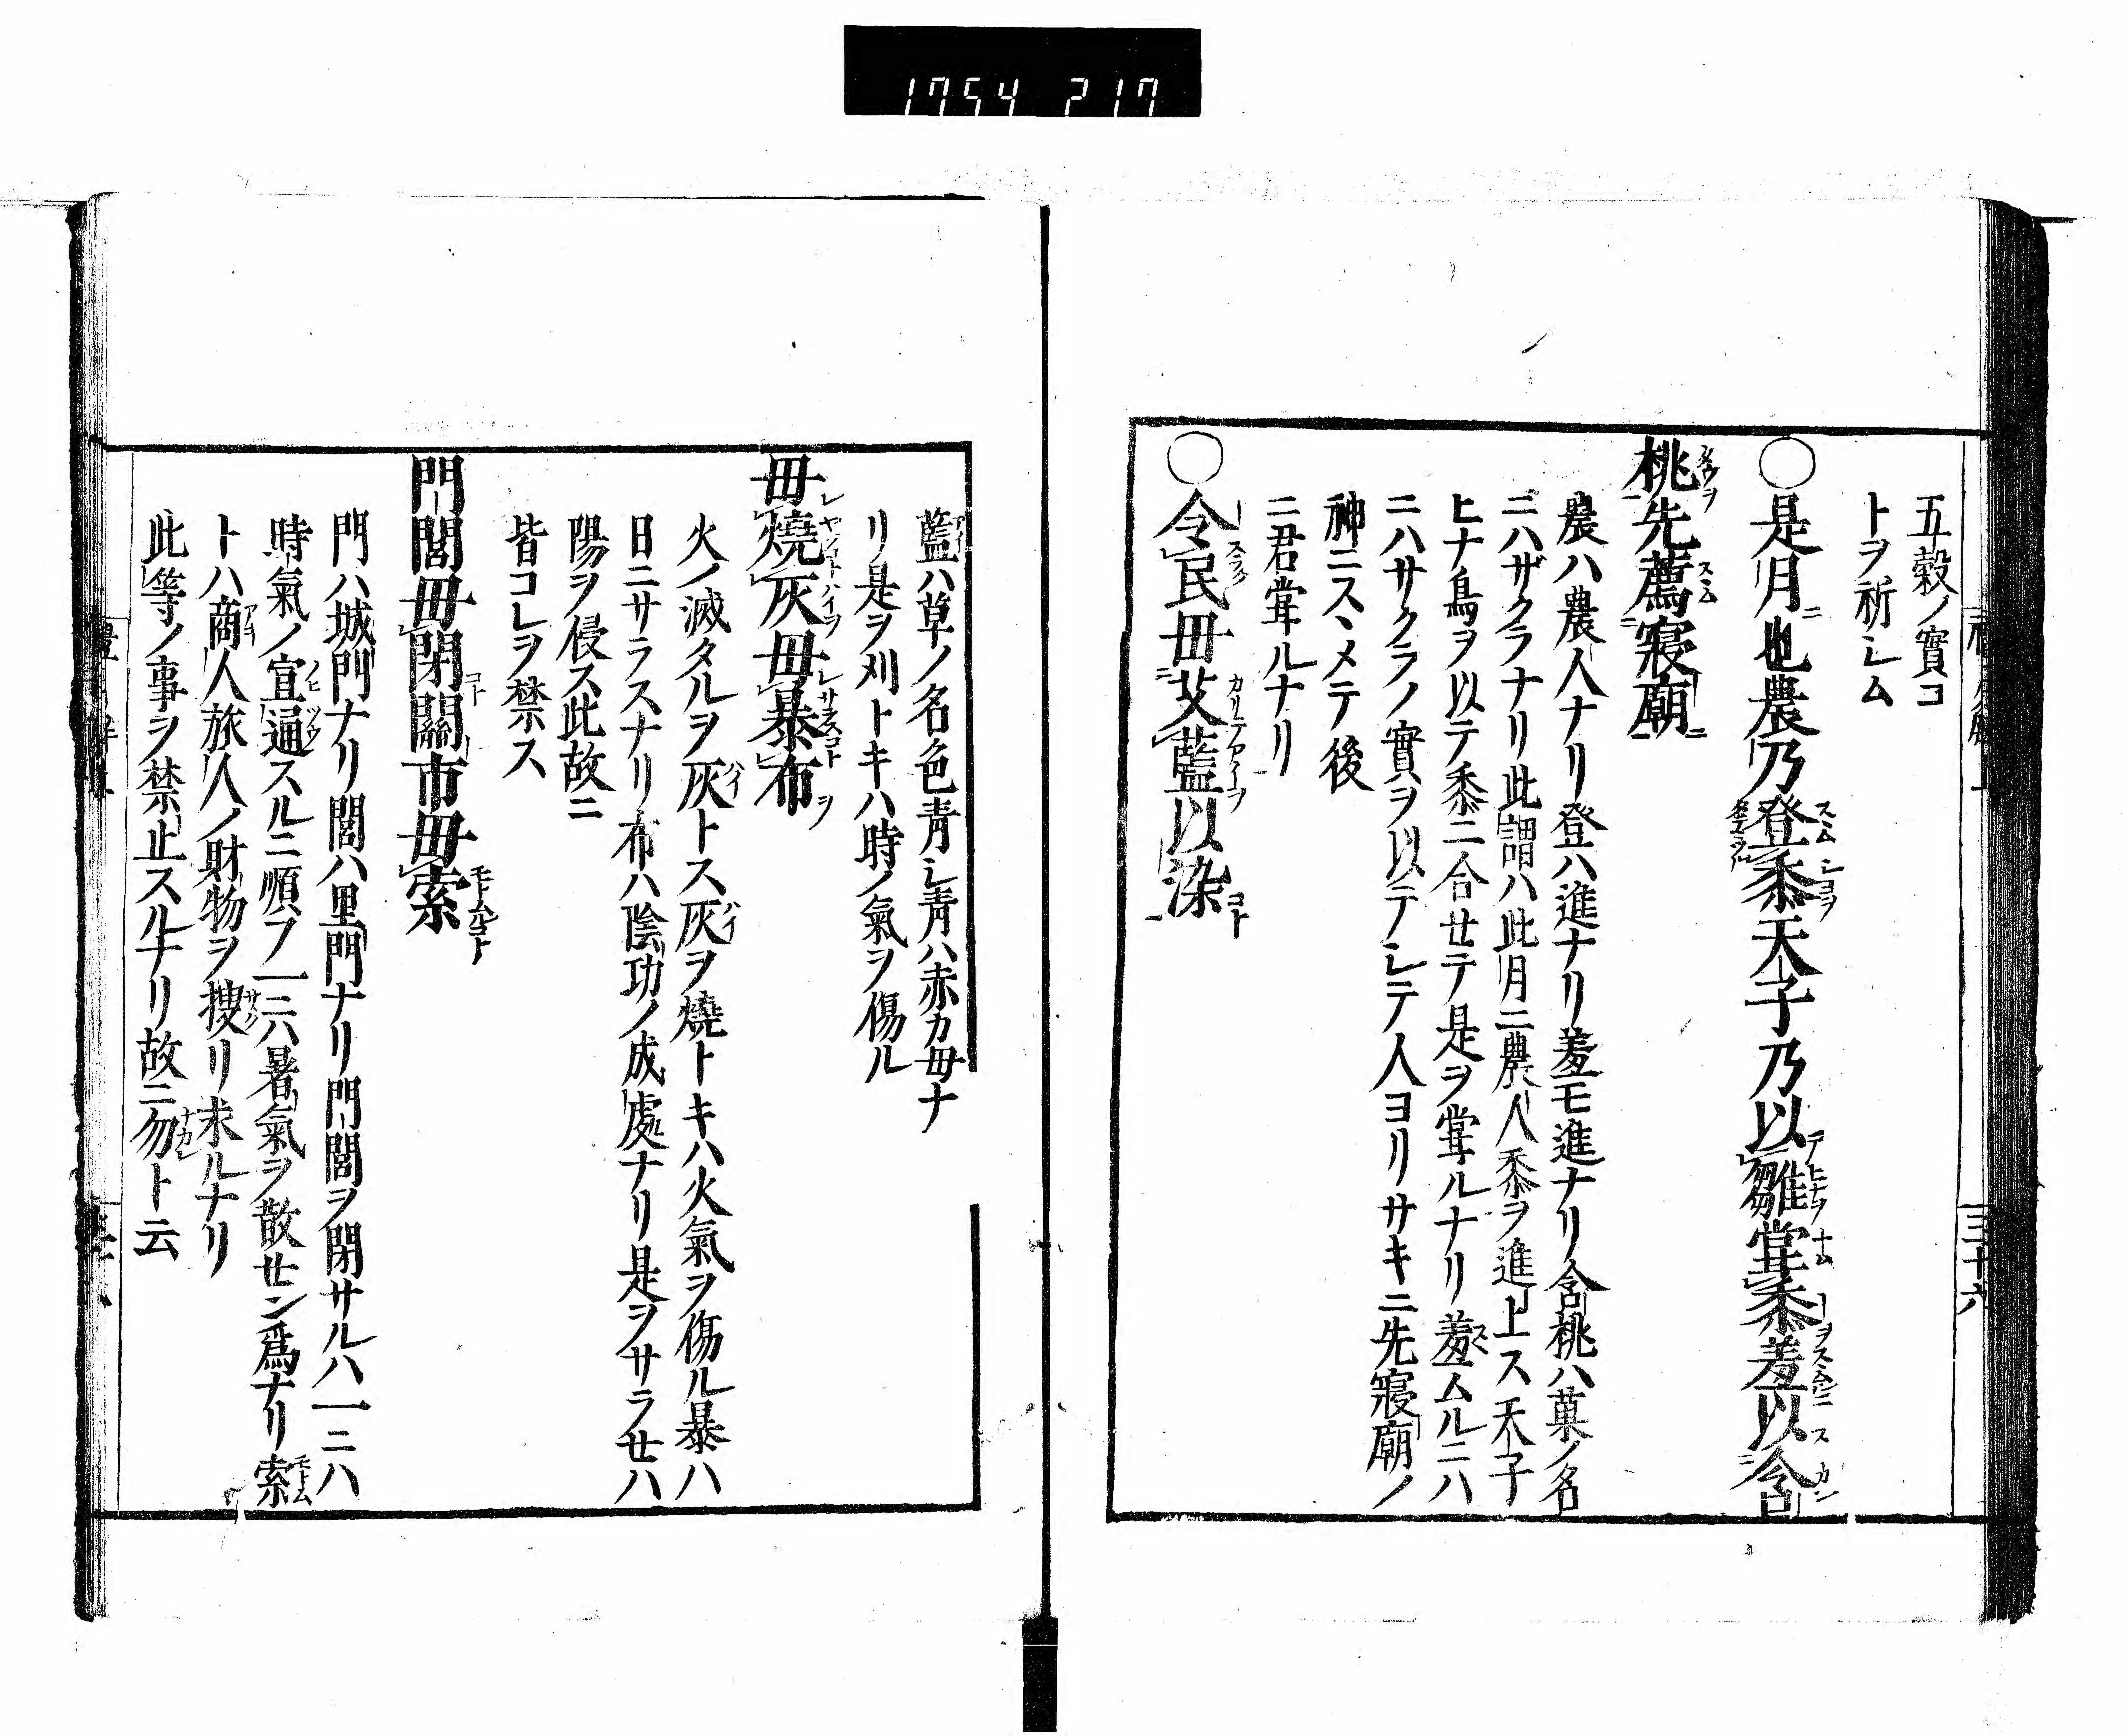 1754 217
五穀ノ實コ
トヲ祈レム
○是月也農乃登黍天子乃以雛甞黍羞以含
桃先薦寢廟
農ハ農人ナリ登ハ進ナリ羞モ進ナリ含桃ハ菓ノ名
ニハザクラナリ此謂ハ此月ニ農人黍ヲ進上ス天子
ヒナ鳥ヲ以テ黍ニ合セテ是ヲ甞ルナリ羞ムルニハ
ニハサクラノ實ヲ以テレテ人ヨリサキニ先寢廟ノ
神ニスヽメテ後
ニ君甞ルナリ
○令民毋艾藍以染
藍ハ草ノ名色青レ青ハ赤カ母ナ
リ是ヲ刈トキハ時ノ氣ヲ傷ル
毋燒灰毋暴布
火ノ滅タルヲ灰トス灰ヲ燒トキハ火氣ヲ傷ル暴ハ
日ニサラスナリ布ハ陰功ノ成處ナリ是ヲサラセハ
陽ヲ侵ス此故ニ
皆コレヲ禁ス
門閭毋閉關市毋索
門ハ城門ナリ閭ハ里門ナリ門閭ヲ閉サルハ一ニハ
時氣ノ宣通スルニ順フ一ニハ暑氣ヲ散セン爲ナリ索
トハ商人旅人ノ財物ヲ搜リ求ルナリ
此等ノ事ヲ禁止スルナリ故ニ勿ト云